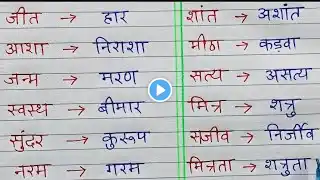 जीत → हार
आशा → निराशा
जन्म → मरण
स्वस्थ → बीमार
सुंदर → कुरूप
नरम → गरम
शांत → अशांत
मीठा → कड़वा
सत्य → असत्य
मित्र → शत्रु
सजीव → निर्जीव
मित्रता → शत्रुता